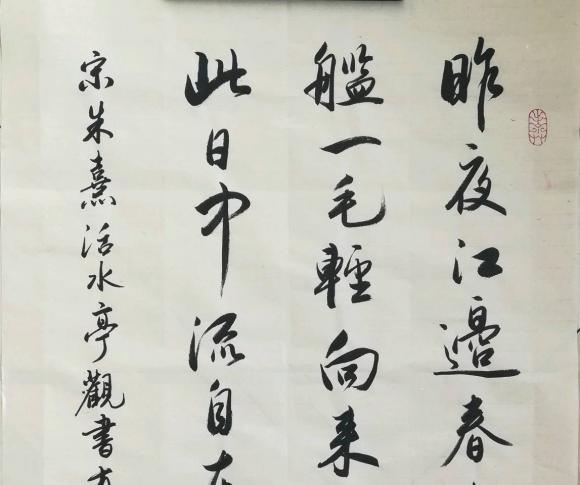 昨夜江邉春
艦一毛輕向来
此日中流自在
宋朱熹活水亭觀書有